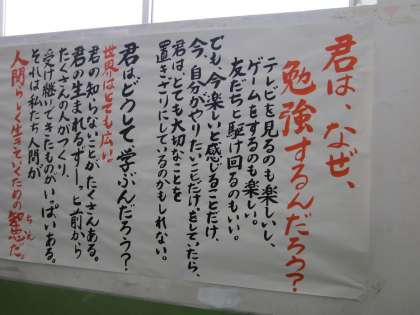 君は、なぜ、
勉強するんだろう?
テレビを見るのも楽しいし、
ゲームをするのも楽しい。
友だちと駆け回るのもいい。
でも、今楽しいと感じることだけ、
今、自分がやりたいことだけをしていたら、
君は、とても大切なことを
置きざりにしているのかもしれない。
君はどうして学ぶんだろう?
世界はとても広い。
君の知らないことがたくさんある。
君の生まれるずーっと前から
たくさんの人がつくり、
受け継いできたものがいっぱいある。
それは私たち人間が
人間らしく生きていくための智恵だ。
ちえ